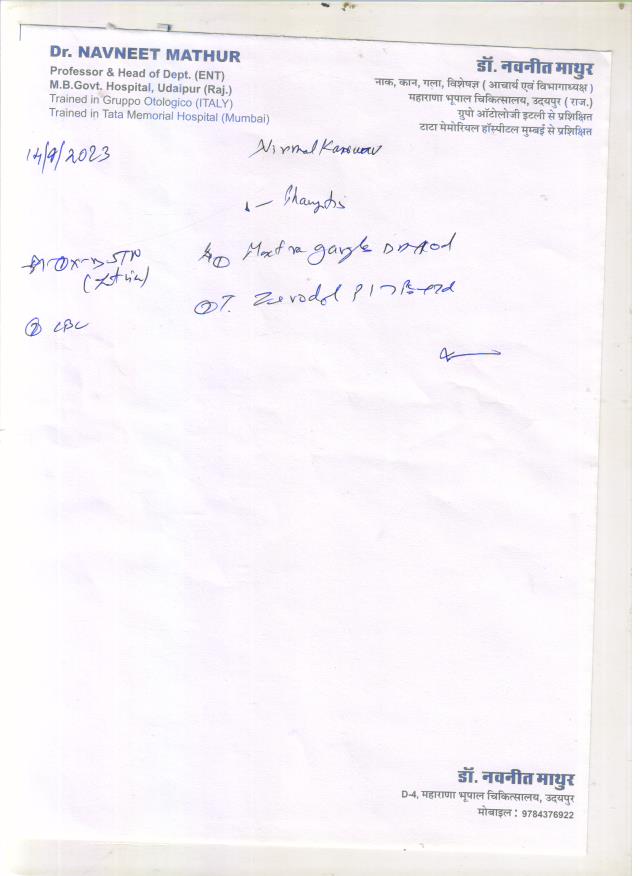 Dr. NAVNEET MATHUR
Professor & Head of Dept. (ENT)
M.B.Govt. Hospital, Udaipur (Raj.)
Trained in Gruppo Otologico (ITALY)
Trained in Tata Memorial Hospital (Mumbai)
डॉ. नवनीत माथुर
नाक, कान, गला, विशेषज्ञ ( आचार्य एवं विभागाध्यक्ष )
महाराणा भूपाल चिकित्सालय, उदयपुर ( राज.)
ग्रुपो ऑटोलोजी इटली से प्रशिक्षित
टाटा मेमोरियल हॉस्पीटल मुम्बई से प्रशिक्षित
14/9/2023
Nirmal
X-n STN
② CBC
① gargle
② T. Zerodol P
डॉ. नवनीत माथुर
D-4, महाराणा भूपाल चिकित्सालय, उदयपुर
मोबाइल : 9784376922